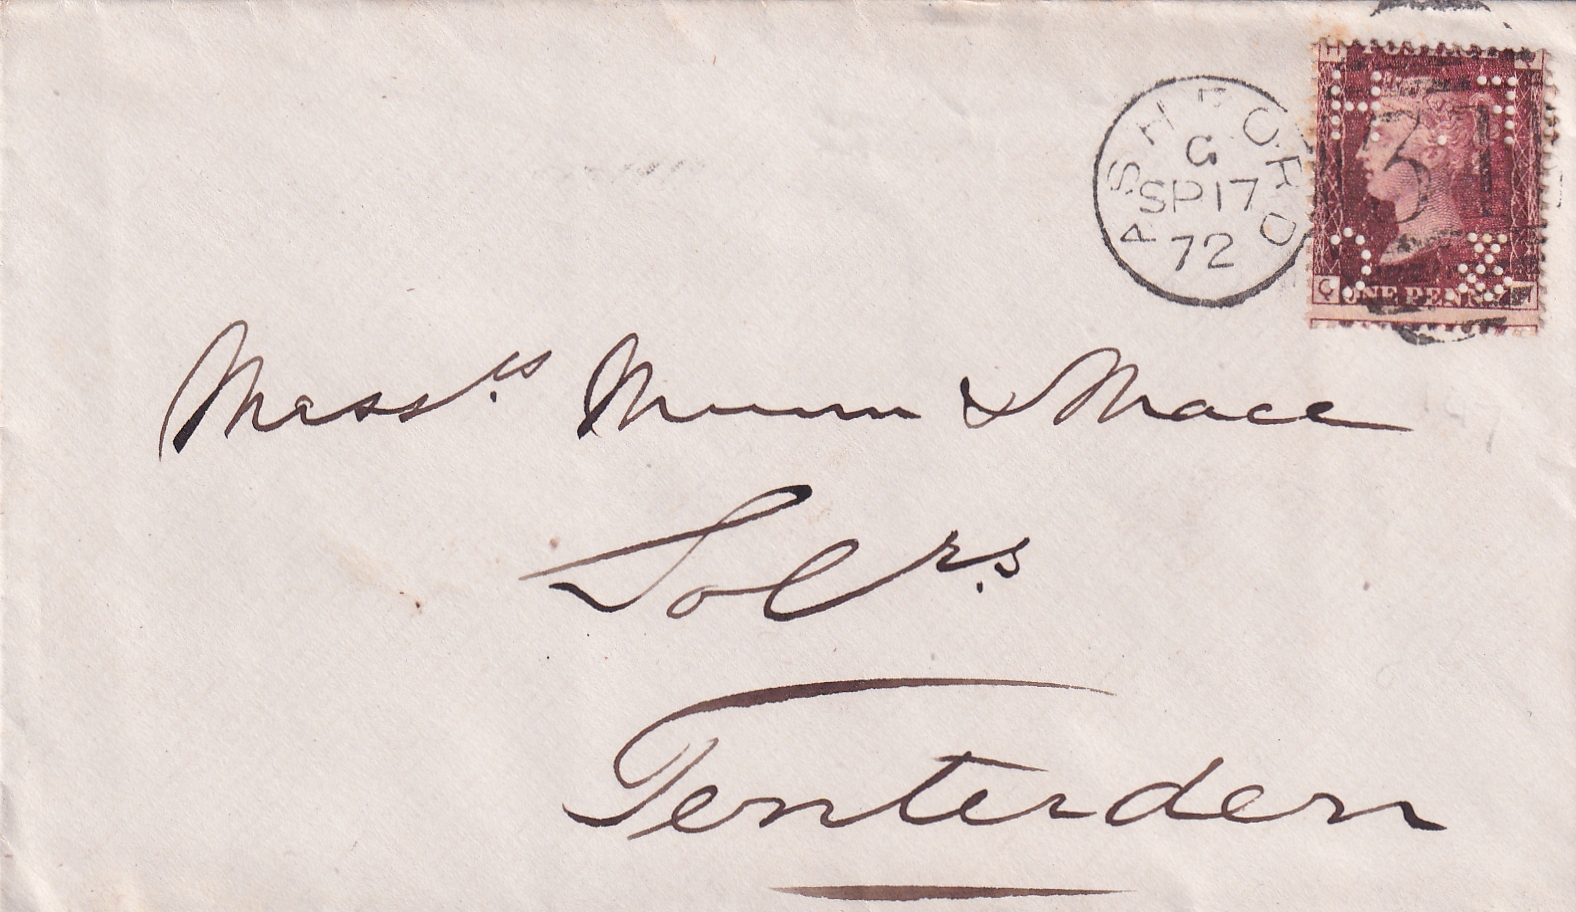 ASHFORD
G
SP 17
72
31
ONE PENNY
Mess.rs Munn & Mace
Sol.rs
Tenterden